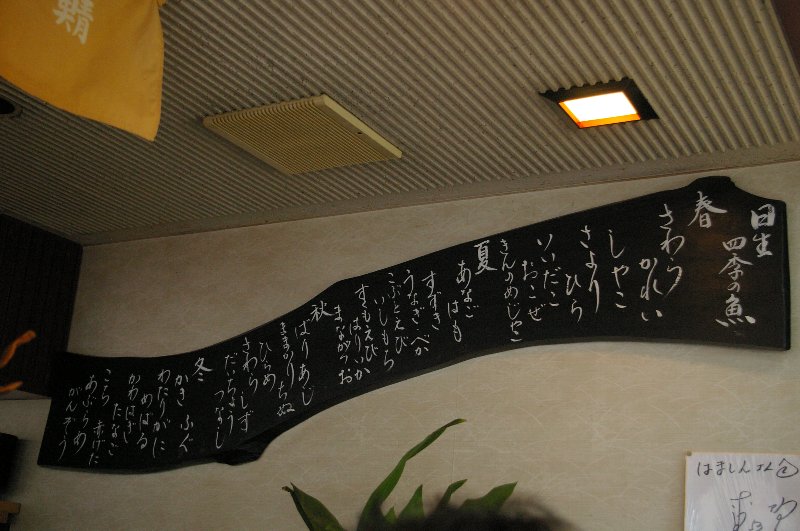 鯖
日生
四季の魚
春
さわら
かれい
しゃこ
さより
ひら
いいだこ
おこぜ
きんのめじゃこ
夏
あなご
はも
すずき
べか
うなぎ
こぶとえび
いしもち
すもえび
はりいか
まながつお
秋
ばりあじ
ままかり
ちぬ
ひらめ
さわら
しず
だっちょう
つなし
冬
かき
ふぐ
わたりがに
めばる
かわはぎ
たなご
こち
あぶらめ
がんぞう
はましんさん